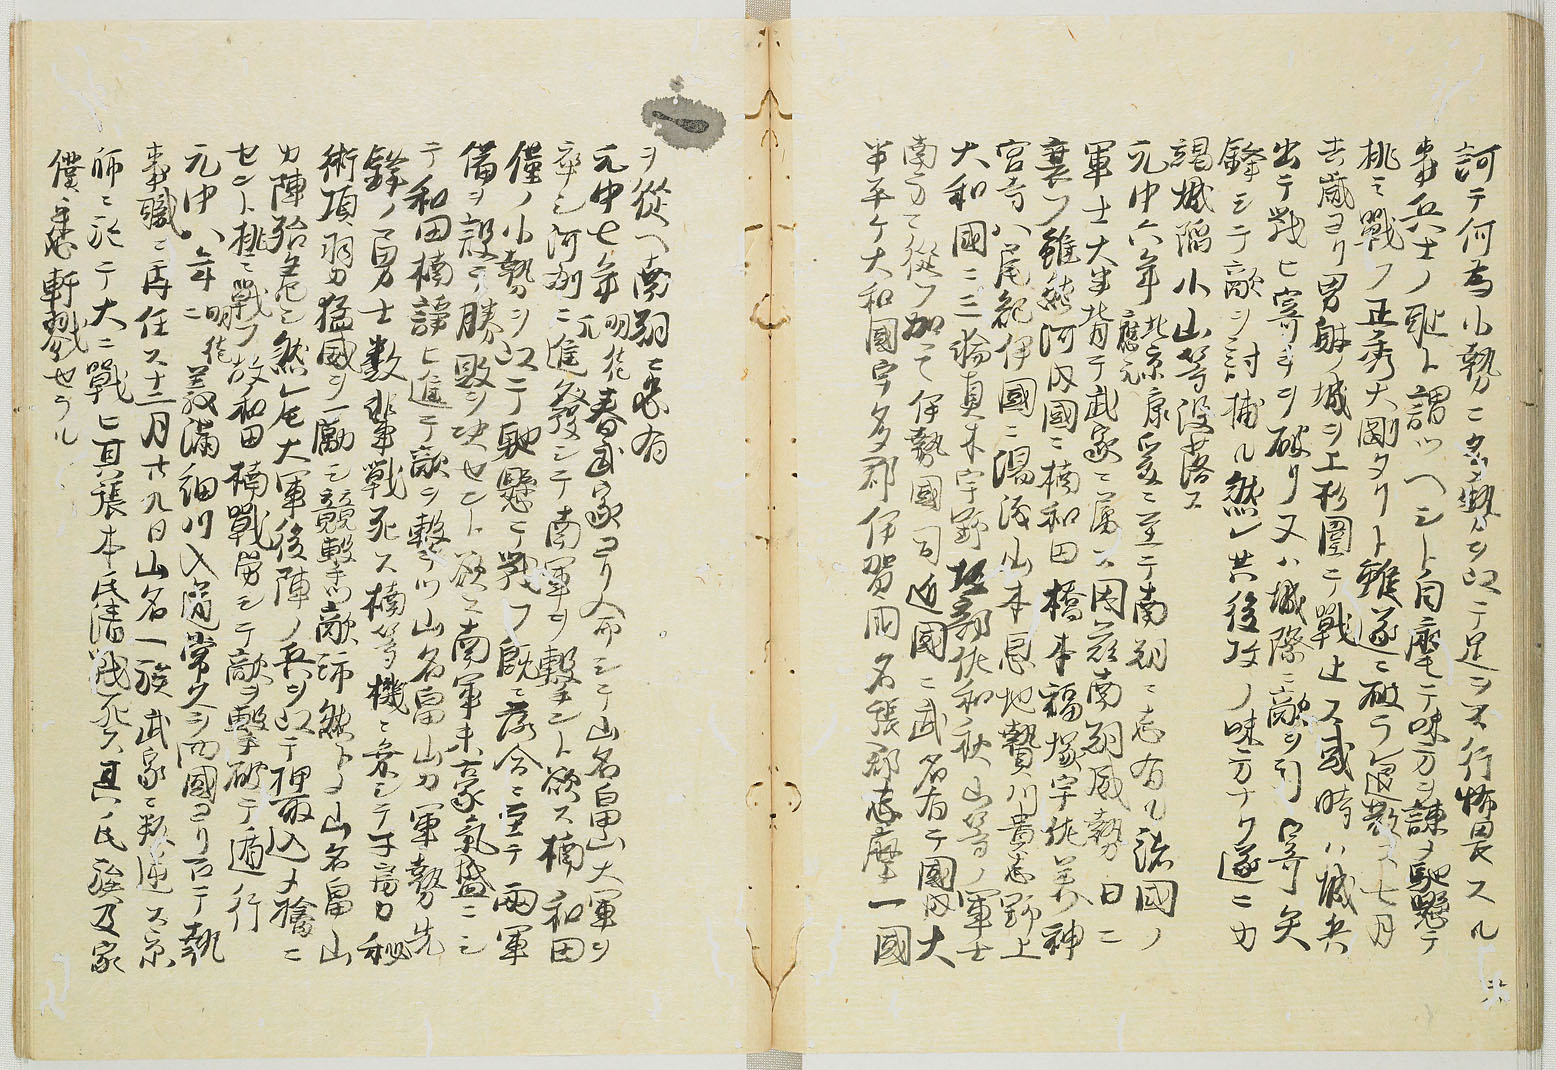 訶テ何為小勢ニ多勢ヲ以テ足ヲ不行怖畏スル
事兵士ノ耻ト謂ツヘシト自麾テ味方ヲ諫メ馳懸テ
桃ミ戦フ正秀大剛タリト雖遂ニ破ラレ退散ス七月
去歳ヨリ男餘ノ城ヲ上杉圍テ戦止ス或時ハ城兵
出テ戦ヒ寄手ヲ破リ又ハ城際ニ敵ヲ引寄矢
鋒ミテ敵ヲ討捕ル然レ共後攻ノ味方ナク遂ニカ
謁城陥小山等没落ス
元中六年 北京康應元 爰ニ至テ南朝ニ志有ル諸國ノ
軍士大半背テ武家ニ属ス因茲南朝威勢日ニ
襄フ雖然河内國ニ楠和田橋本福塚宇佐美神
宮寺八尾紀伊國ニ湯浅山本恩地贄川貴志野上
大和國ニ三輪真木宇野坂部佐和秋山等ノ軍士
南方ニ從フ加ヘテ伊勢國司近國ニ武名有テ國内大
半平ケ大和國宇多郡伊賀國名張郡志摩一國
ヲ從ヘ南朝ニ忠有
元中七年 明徳元 春武家ヨリ命シテ山名畠山大軍ヲ
卒シ河州ニ進發シテ南軍ヲ撃ント欲ス楠和田
僅ノ小勢ヲ以テ馳懸テ戦フ既ニ落合ニ至テ両軍
備ヲ設テ勝敗ヲ决セント欲ス南軍未豪氣盛ニシ
テ和田楠諍ヒ進テ敵ヲ撃ツ山名畠山カ軍勢先
鋒ノ勇士数輩戦死ス楠等機ニ乗シテ子房カ秘
術項羽カ猛威ヲ勵シ競撃ツ敵師然トノ山名畠山
カ陣殆危シ然レ圧大軍後陣ノ兵ヲ以テ押取込メ擒ニ
セント桃ミ戦フ故和田楠戦労シテ敵ヲ撃破テ遁行
元中八年 明徳二 義満細川入道常久ヲ四國ヨリ召テ執
事職ニ再任ス十二月廿九日山名一族武家ニ叛逆ス京
師ニ於テ大ニ戦ヒ其張本氏清戦死ス其ノ氏強及家
僕悉軒戮セラル